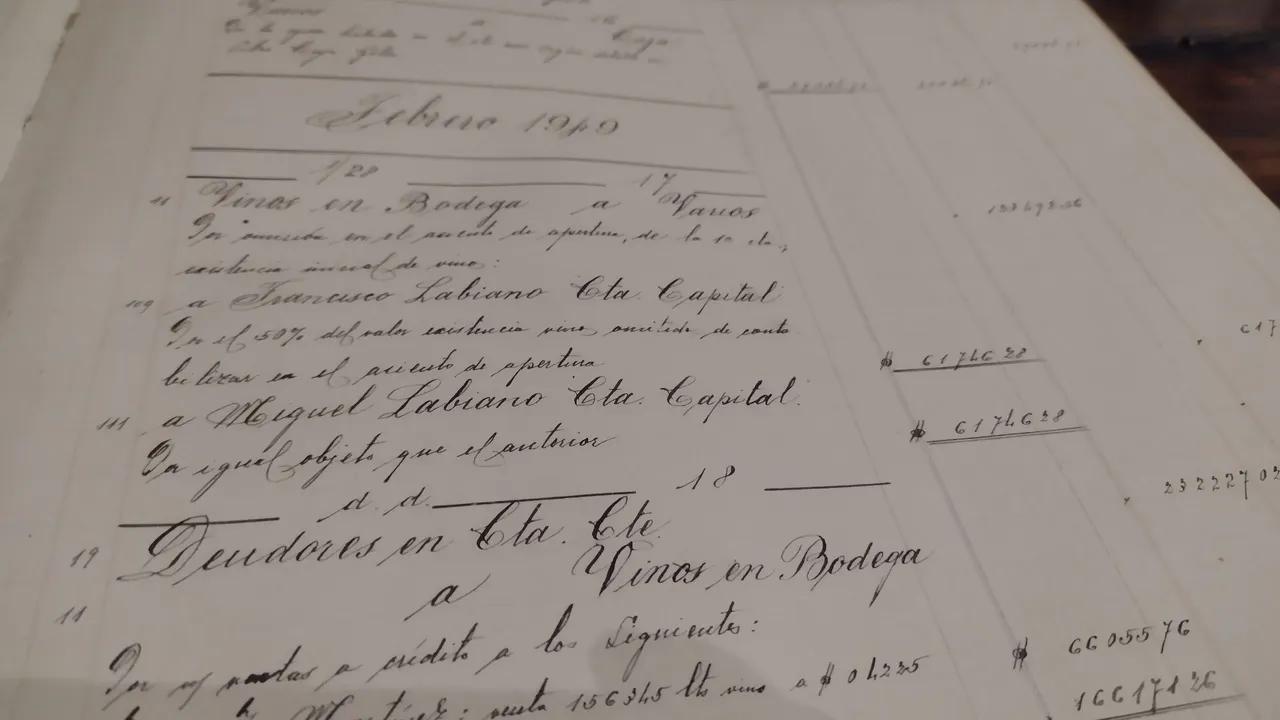 Vinos
Caja
Febrero 1949
1/28 17
11 Vinos en Bodega a Varios
Por omisión en el asiento de apertura, de la
existencia inicial de vino:
109 a Francisco Labiano Cta. Capital
Por el 50% del valor existencia vino omitido de conta
bilizar en el asiento de apertura $ 6174628 617
111 a Miguel Labiano Cta. Capital.
Por igual objeto que el anterior $ 6174628
d. d. 18
19 Deudores en Cta. Cte. 23222702
11 a Vinos en Bodega
Por ventas a crédito a los siguientes: $ 6605576
Martínez: venta 156345 lts vino a $ 04225 16617126